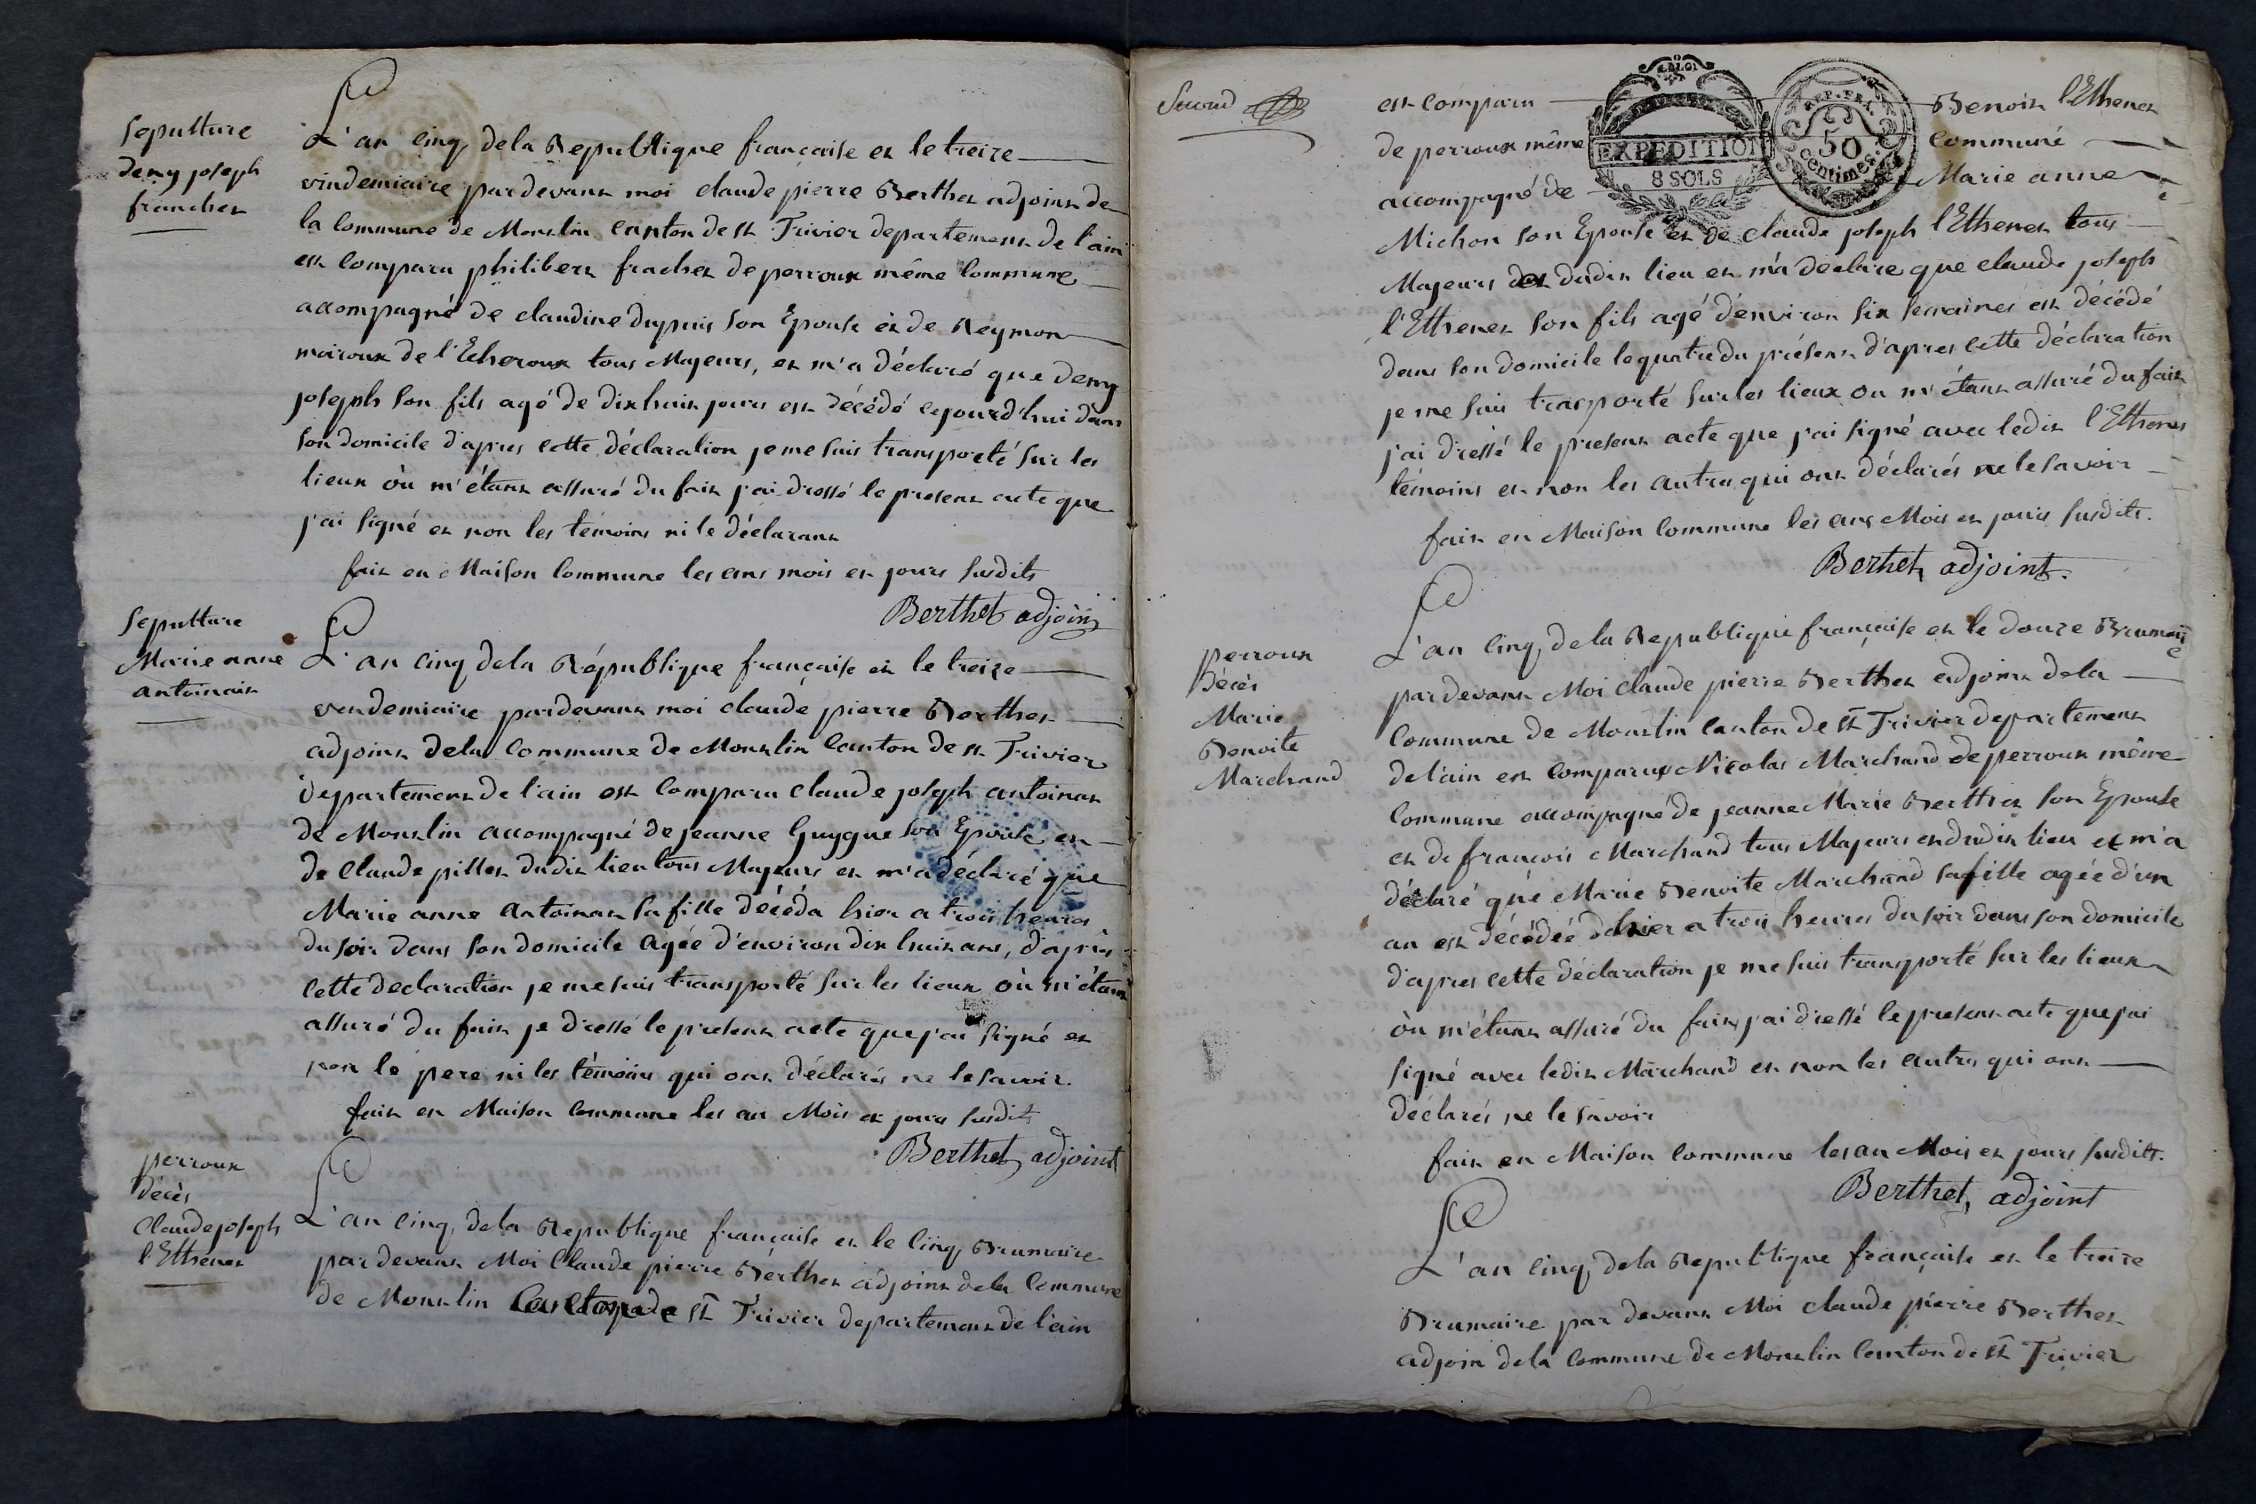 Sepulture
Deny joseph
franchet
L'an cinq de la Republique francaise et le treize
vindemiaire pardevant moi claude pierre Berthet adjoint de
la commune de Mouslin canton de St Trivier departement de l'ain
est comparu philibert frachet de perroux même commune
accompagné de claudine dupuis son Epouse et de Reymon
moiroux de l'Echeroux tous Majeurs, et m'a déclaré que Deny
joseph son fils agé de dixhuit jours est décédé cejourd'hui dans
son domicile d'apres cette déclaration je me suis transporté sur les
lieux où m'étant assuré du fait j'ai dressé le present acte que
j'ai signé et non les témoins ni le déclarant
fait en Maison Commune les ans mois et jours susdits
Berthet adjoint
Sepulture
Marie anne
antoinat
L'an cinq dela République française et le treize
vendemiaire pardevant moi claude pierre Berthet
adjoint dela Commune de Mouslin Canton de St Trivier
Departement de l'ain est Comparu Claude joseph antoinat
de Mouslin accompagné de jeanne Guygue son Epouse et
de Claude pillet dudit lieu tous Majeurs et m'a déclaré que
Marie anne antoinat sa fille décéda hier a trois heures
du soir dans son domicile agée d'environ dix huit ans, d'après
cette declaration je me suis transporté sur les lieux où m'étant
assuré du fait je dressé le present acte que j'ai signé et
non le pere ni les témoins qui ont déclarés ne le savoir.
fait en Maison commune les an Mois et jours susdits
Berthet adjoint
perroux
Décès
Claude joseph
l'Ethenet
L'an cinq, dela Republique française et le cinq, Brumaire
pardevant Moi Claude pierre Berthet adjoint dela Commune
de Mouslin Canton de St Trivier departement de l'ain
Second
EXPEDITION
8 SOLS
REP. FRA.
50
Centimes.
est comparu Benoit l'Ethenet
de perroux même Commune
accompagné de Marie anne
Michon son Epouse et de claude joseph l'Ethenet tous
Majeurs dudit lieu et m'a declare que claude joseph
l'Ethenet son fils agé d'environ six semaines est décédé
dans son domicile le quatre du présent d'apres cette déclaration
je me suis trasporté sur les lieux ou m'étant assuré du fait
j'ai dressé le present acte que j'ai signé avec ledit l'Ethenet
témoins et non les autres qui ont déclarés ne le savoir
fait en Maison Commune les ans Mois et jours susdits.
Berthet, adjoint.
perroux
Décès
Marie
Benoite
Marchand
L'an cinq, de la Republique française et le douze Brumaire
pardevant Moi Claude pierre Berthet adjoint dela
Commune de Mouslin Canton de St Trivier departement
de l'ain est Comparu Nicolas Marchand de perroux même
Commune accompagné de jeanne Marie Berthet son Epouse
et de francois Marchand tous Majeurs et dudit lieu et m'a
déclaré que Marie Benoite Marchand sa fille agée d'un
an est décédée hier a trois heures du soir dans son domicile
d'apres cette déclaration je me suis transporté sur les lieux
où m'étant assuré du fait j'ai dressé le present acte que j'ai
signé avec ledit Marchand et non les autres qui ont
déclarés ne le savoir
fait en Maison Commune les an Mois et jours susdits.
Berthet, adjoint
L'an cinq, dela Republique française et le treize
Brumaire par devant Moi claude pierre Berthet
adjoin dela Commune de Mouslin Canton de St Trivier